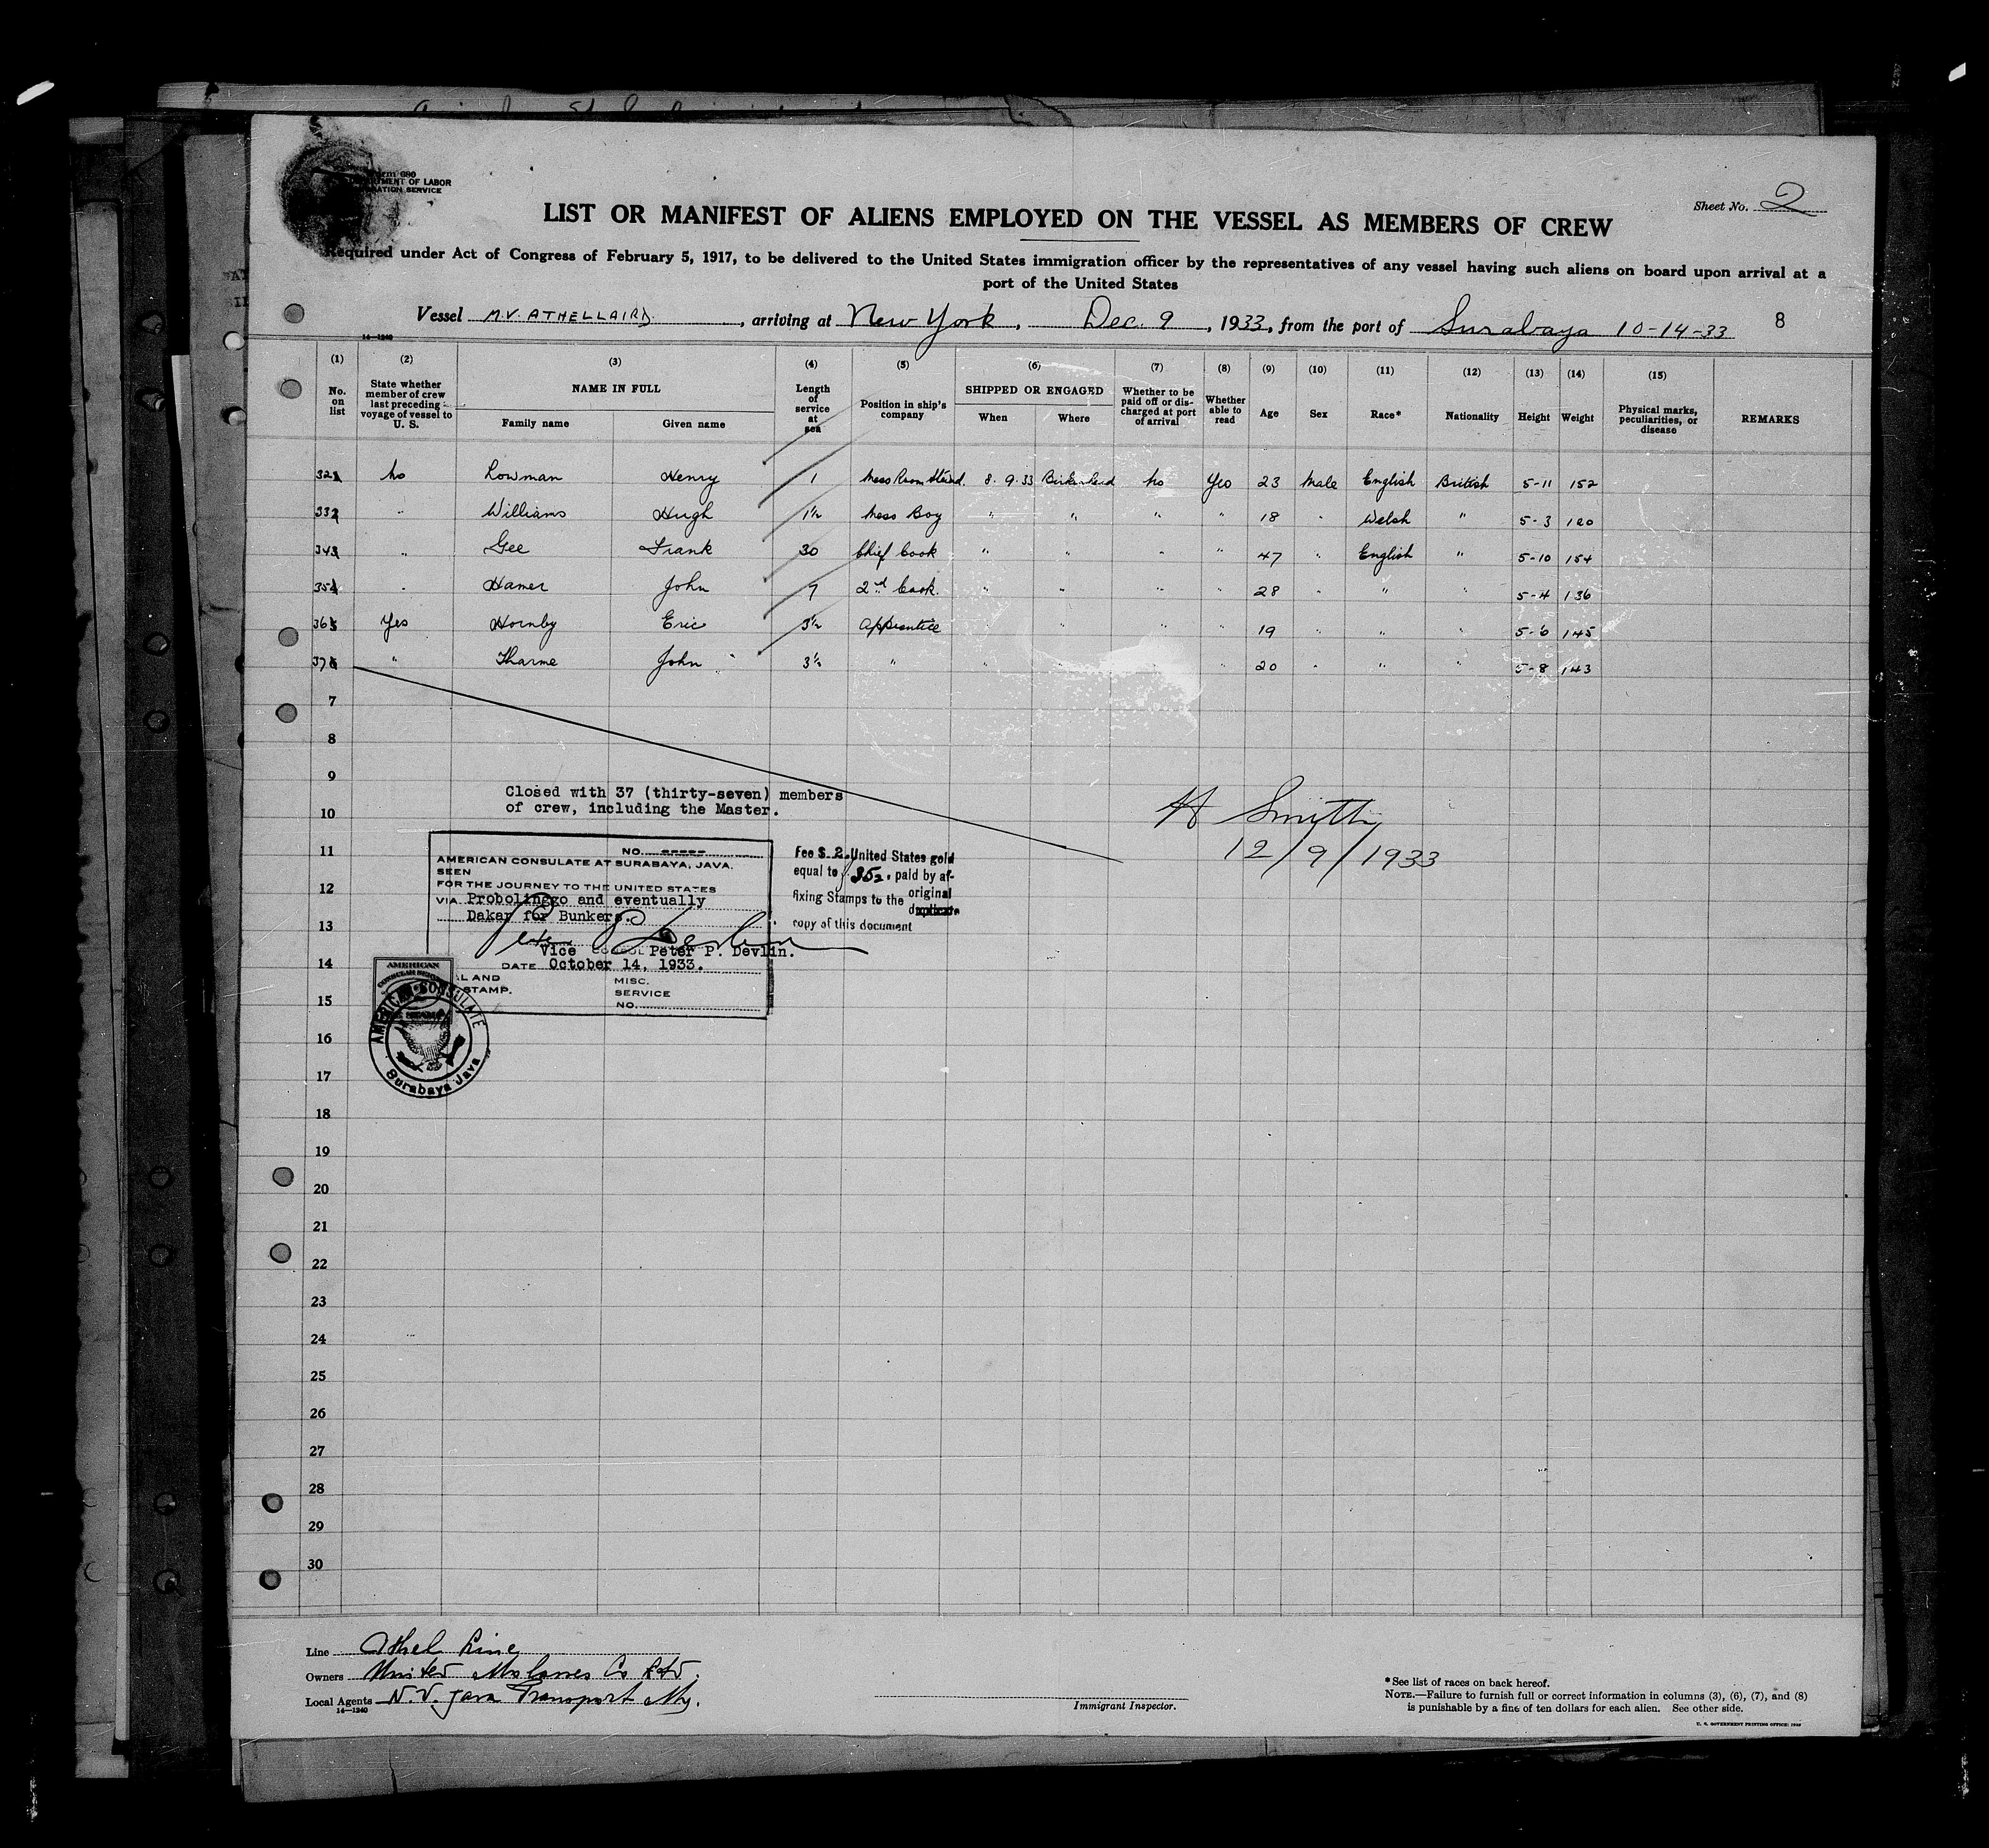 Form 680
DEPARTMENT OF LABOR
IMMIGRATION SERVICE
Sheet No. 2
LIST OR MANIFEST OF ALIENS EMPLOYED ON THE VESSEL AS MEMBERS OF CREW
Required under Act of Congress of February 5, 1917, to be delivered to the United States immigration officer by the representatives of any vessel having such aliens on board upon arrival at a
port of the United States
Vessel M.V. ATHELLAIRD, arriving at New York, Dec. 9, 1933, from the port of Surabaya 10-14-33 8
14—1240
(1) (2) (3) (4) (5) (6) (7) (8) (9) (10) (11) (12) (13) (14) (15)
No. on list State whether member of crew last preceding voyage of vessel to U. S. NAME IN FULL Family name Given name Length of service at sea Position in ship's company SHIPPED OR ENGAGED When Where Whether to be paid off or discharged at port of arrival Whether able to read Age Sex Race* Nationality Height Weight Physical marks, peculiarities, or disease REMARKS
32 No Lowman Henry 1 Mess Room Steward. 8. 9. 33 Birkenhead No Yes 23 Male English British 5-11 152
33 " Williams Hugh 1½ Mess Boy " " " " 18 " Welsh " 5-3 120
34 " Gee Frank 30 Chief Cook " " " " 47 " English " 5-10 154
35 " Hamer John 7 2nd Cook. " " " " 28 " " " 5-4 136
36 Yes Hornby Eric 3½ Apprentice " " " " 19 " " " 5-6 145
37 " Tharme John 3½ " " " " " 20 " " " 5-8 143
7
8
9
Closed with 37 (thirty-seven) members
of crew, including the Master.
10
H Smith
12/9/1933
11
NO. -----
AMERICAN CONSULATE AT SURABAYA, JAVA.
SEEN
FOR THE JOURNEY TO THE UNITED STATES
VIA Probolinggo and eventually
Dakar for Bunkers.
Vice CONSUL Peter P. Devlin.
DATE October 14, 1933.
L AND
STAMP.
MISC.
SERVICE
NO.
Fee $ 2. United States gold
equal to f 352. paid by af-
fixing Stamps to the original
duplicate
copy of this document
AMERICAN
AMERICAN CONSULATE
Surabaya Java
12
13
14
15
16
17
18
19
20
21
22
23
24
25
26
27
28
29
30
Line Athel Line
Owners United Molasses Co Ltd.
Local Agents N.V. Java Transport My.
14—1240
Immigrant Inspector.
* See list of races on back hereof.
NOTE.—Failure to furnish full or correct information in columns (3), (6), (7), and (8)
is punishable by a fine of ten dollars for each alien. See other side.